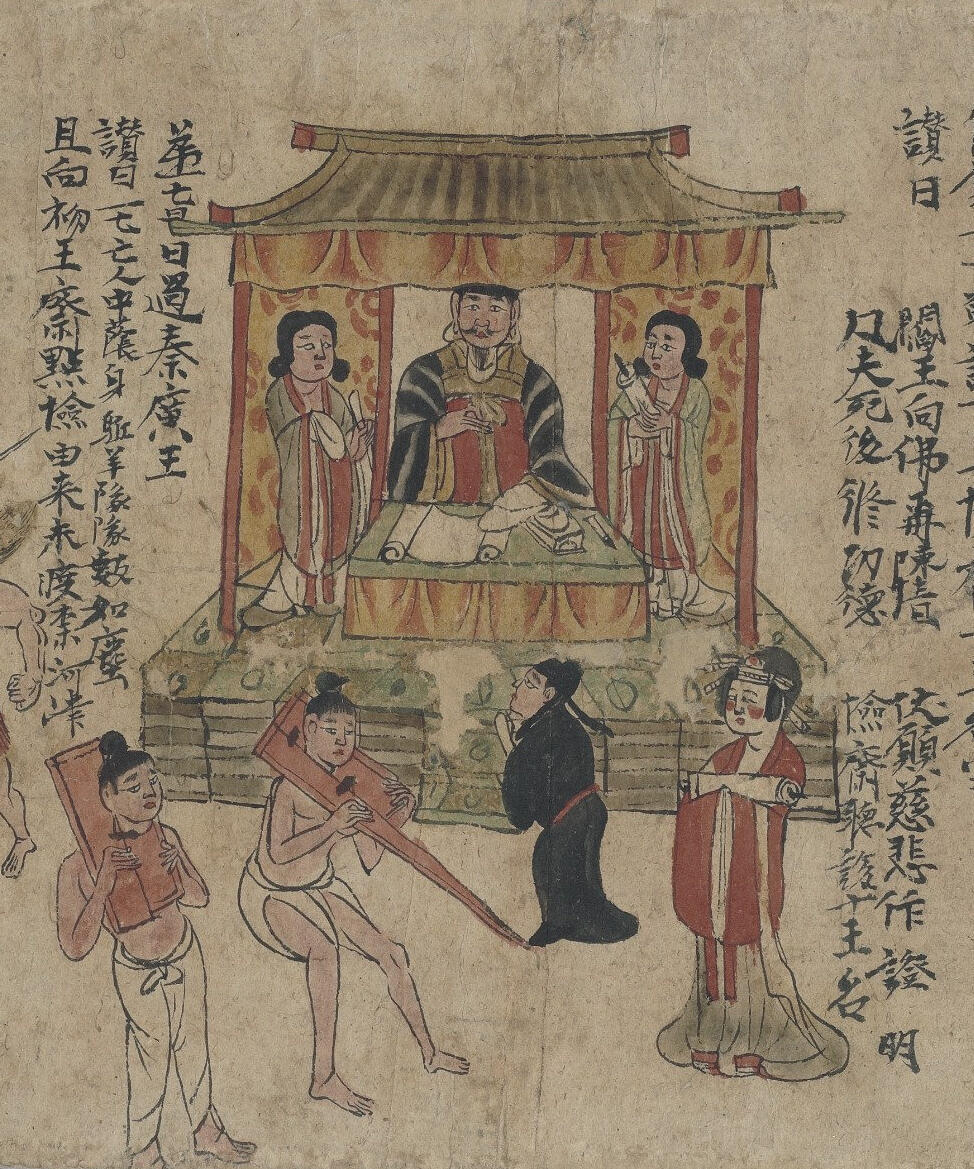 讃曰
閻王向佛再陳情 伏願慈悲作證明
凡夫死後修功德 撿齋聽説十王名
第七日過秦廣王
讃曰一七亡人中蔭身駈羊隊隊數如塵
且向初王齋點撿由来未渡柰河津